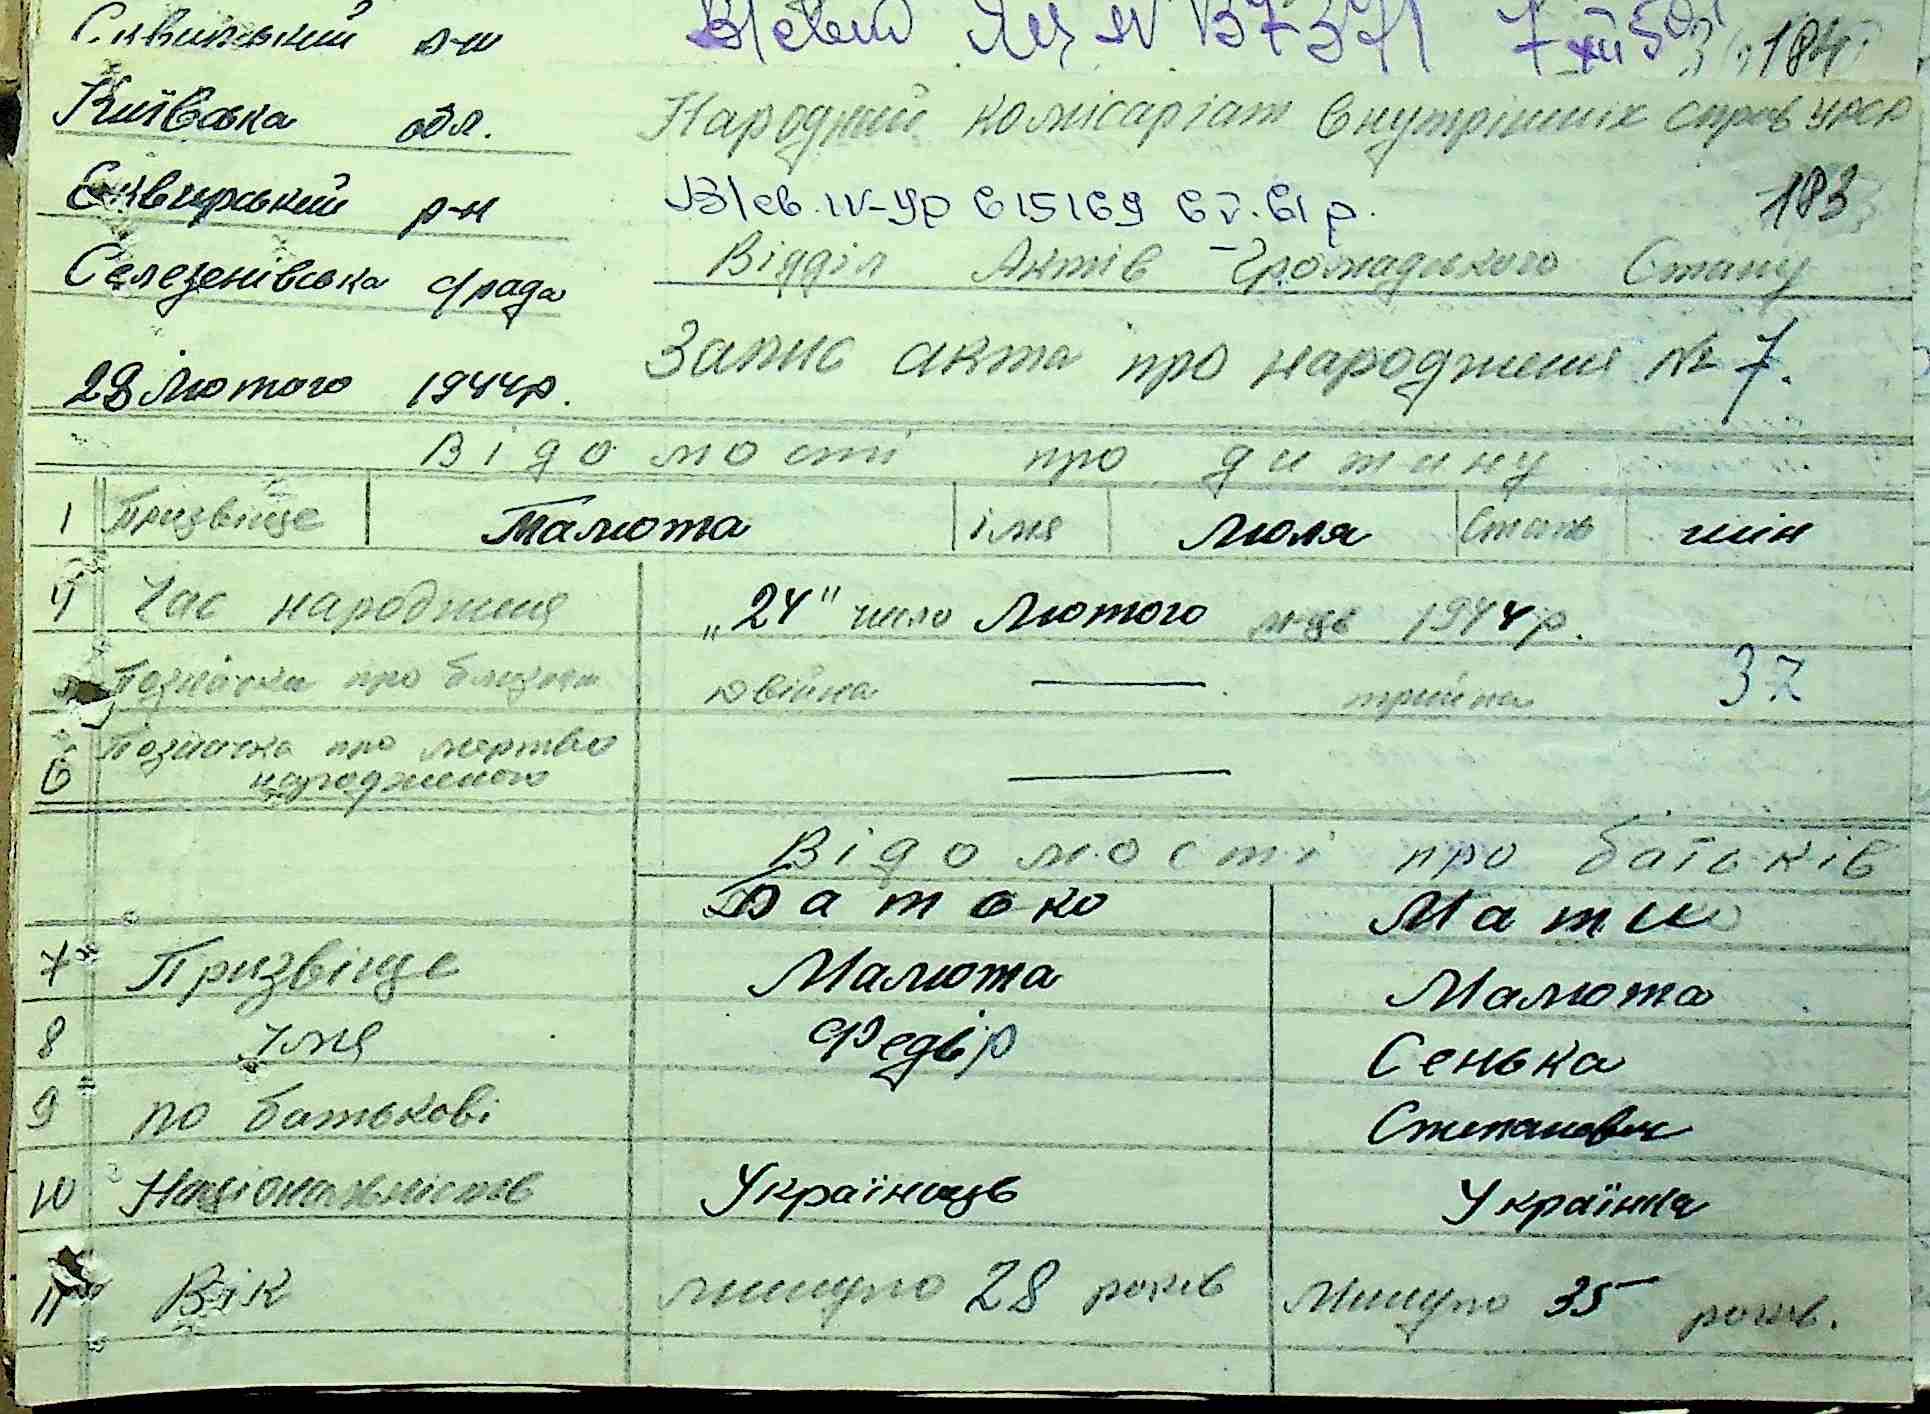 р-н
В/свід ЯЦ N 137371 7 XII 50р
184
Київська обл.
Народний комісаріат внутрішніх справ УРСР
Сквирський р-н
В/св. IV-УР 615169 6 V. 61 р.
183
Селезенівська с/рада
Відділ Актів Громадського Стану
28 Лютого 1944р.
Запис акта про народження № 7.
Відомості про дитину
1 Призвіще Малюта імя Люля Стать жін
4 Час народження „24" число Лютого м-ць 1944р.
Позначка про близнят двійна — трійня 37
6 Позначка про мертво
народженого —
Відомості про батьків
Батько Мати
7 Призвіще Малюта Малюта
8 Імя Федір Сенька
9 по батькові Степановн
10 Національність Українець Українка
11 Вік минуло 28 років Минуло 35 років.